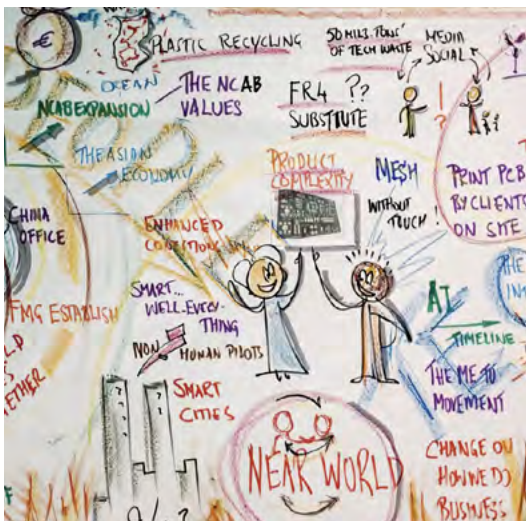 €
PLASTIC RECYCLING
50 MILJ. TONS
OF TECH WASTE
MEDIA
SOCIAL
OCEAN
NCAB EXPANSION
THE NCAB
VALUES
FR4 ??
SUBSTITUTE
!
?
THE ASIAN
ECONOMY
PRODUCT
COMPLEXITY
MESH
WITHOUT
TOUCH!
PRINT PCB
BY CLIENTS
ON SITE
CHINA
OFFICE
ENHANCED
FMG ESTABLISH
SMART...
WELL-EVERY-
THING
NON HUMAN PILOTS
SMART
CITIES
AI
TIMELINE
THE
INT
THE ME TO
MOVEMENT
LD
ETHER
NEAR WORLD
CHANGE ON
HOW WE DO
BUSINESS